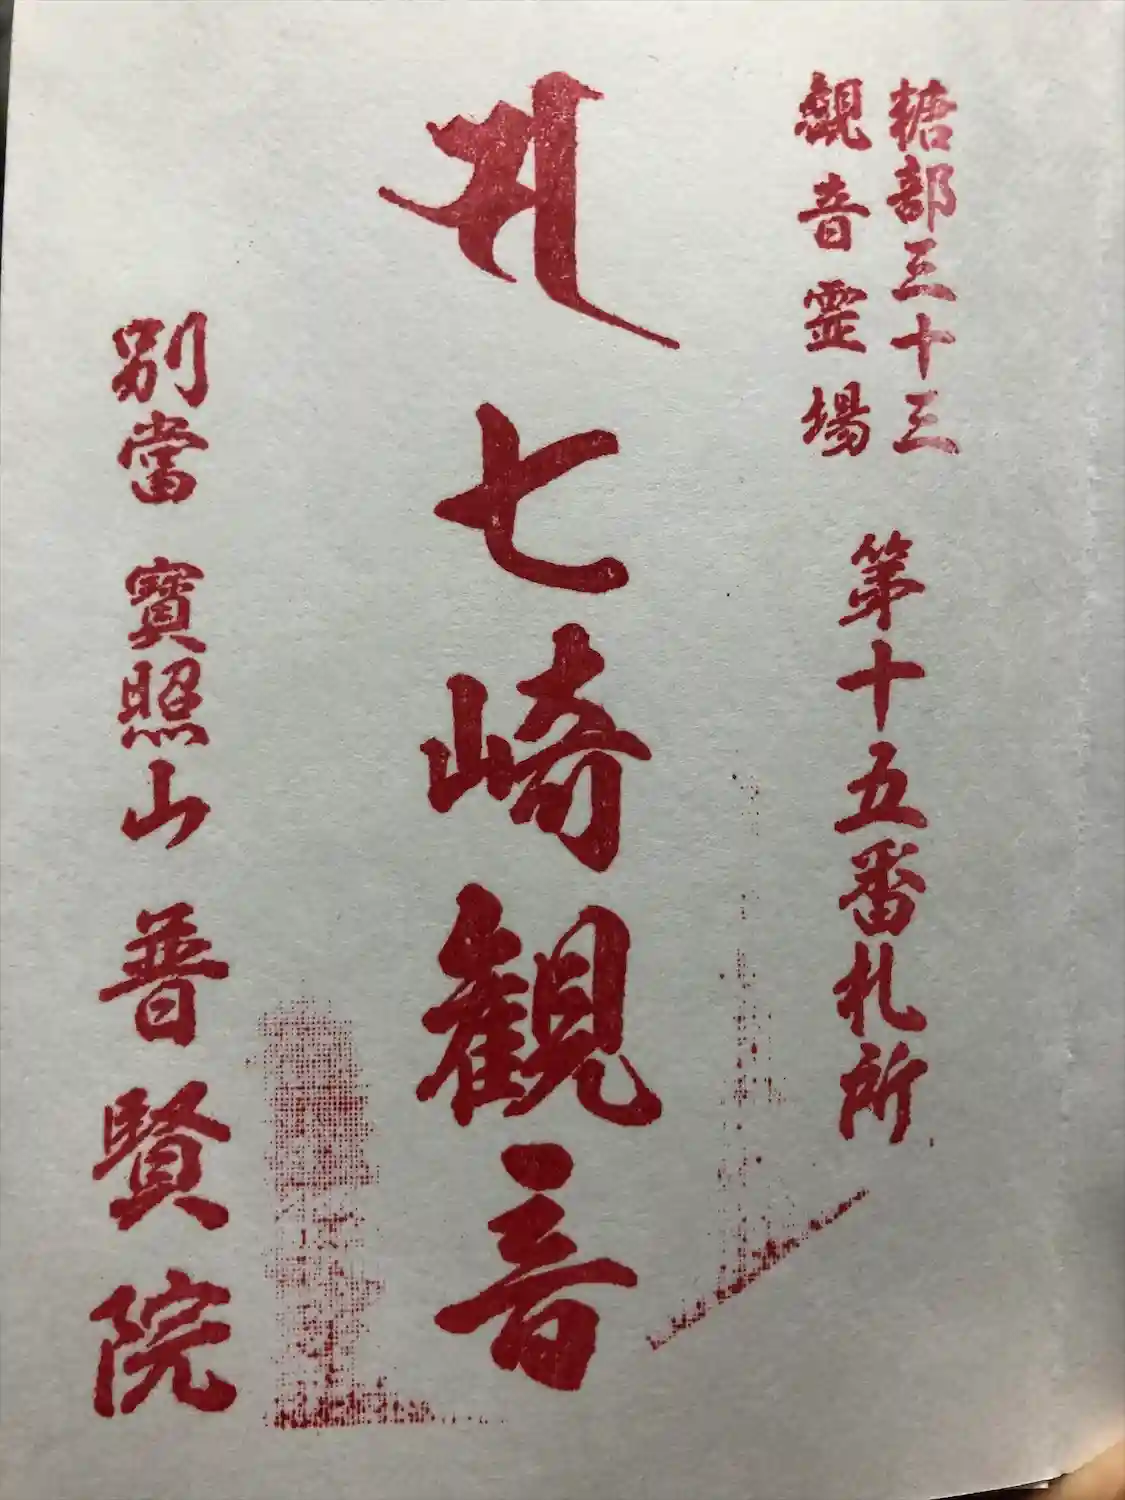 糖部三十三
観音霊場
第十五番札所
𑖭 七崎観音
別當 寶照山 普賢院